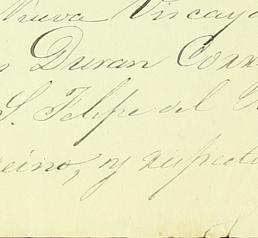 Nueva Vizcaya
Duran Conr
S. Felipe del
eino, y respecto